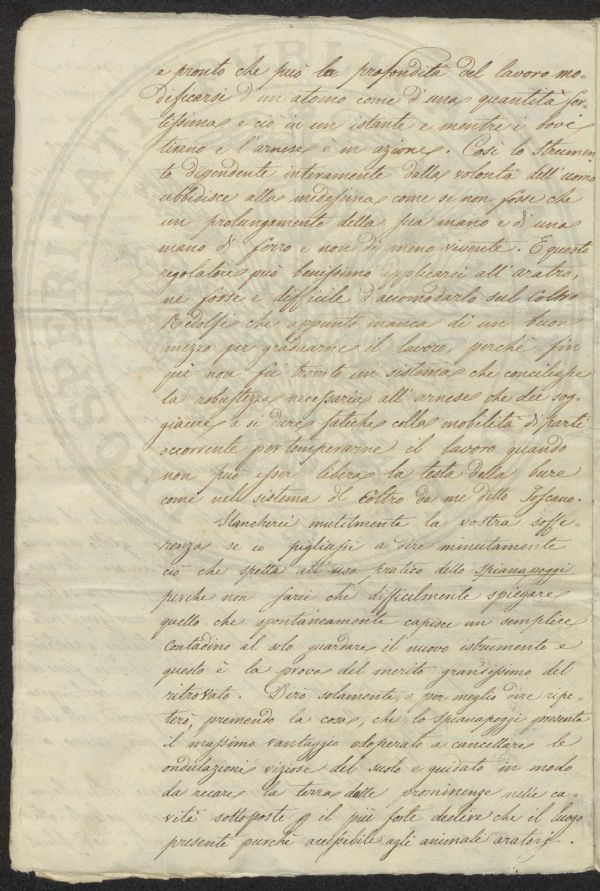 e pronto che può la profondità del lavoro mo-
dificarsi d'un atomo come d'una quantità for-
tissima e ciò in un istante e mentre i bovi
tirano e l'arnese è in azione. Così lo strumen-
to dipendente interamente dalla volontà dell'uomo
ubbidisce alla medesima come se non fosse che
un prolungamento della sua mano e di una
mano di ferro e non di meno vivente. E questo
regolatore può benissimo applicarsi all'aratro,
ne forse è difficile d'accomodarlo sul Coltro
Ridolfi che appunto manca di un buon
mezzo per graduarne il lavoro, perchè fin
quì non fu trovato un sistema che conciliasse
la robustezza necessaria all'arnese che dee sog-
giacere a sì dure fatiche colla mobilità di parti
occorrente per temperarne il lavoro quando
non può esser libera la testa della bure
come nel sistema del Coltro da me detto Toscano.
Stancherei inutilmente la vostra soffe-
renza se io pigliassi a dire minutamente
ciò che spetta all'uso pratico dello Spianapoggi
perchè non farei che difficilmente spiegare
quello che spontaneamente capisce un semplice
Contadino al solo guardare il nuovo istrumento e
questo è la prova del merito grandissimo del
ritrovato. Dirò solamente o per meglio dire ripe-
terò, premendo la cosa, che lo spianapoggi presenta
il massimo vantaggio adoperato a cancellare le
ondulazioni viziose del suolo e guidato in modo
da recare la terra dalle prominenze nelle ca-
vità sottoposte p il più forte declive che il luogo
presenti purchè accessibile agli animali aratorj.
HOSPERITATI PUBLIC